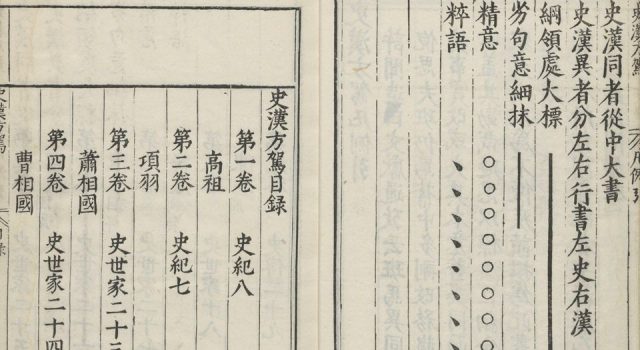 史漢同者從中大書
史漢異者分左右行書左史右漢
綱領處大標
句意細抹
精意 ○○○○○○○○
粹語 、、、、、、、、
史漢方駕目録
第一卷 史紀八
高祖
第二卷 史紀七
項羽
第三卷 史世家二十三
蕭相國
第四卷 史世家二十四
曹相國